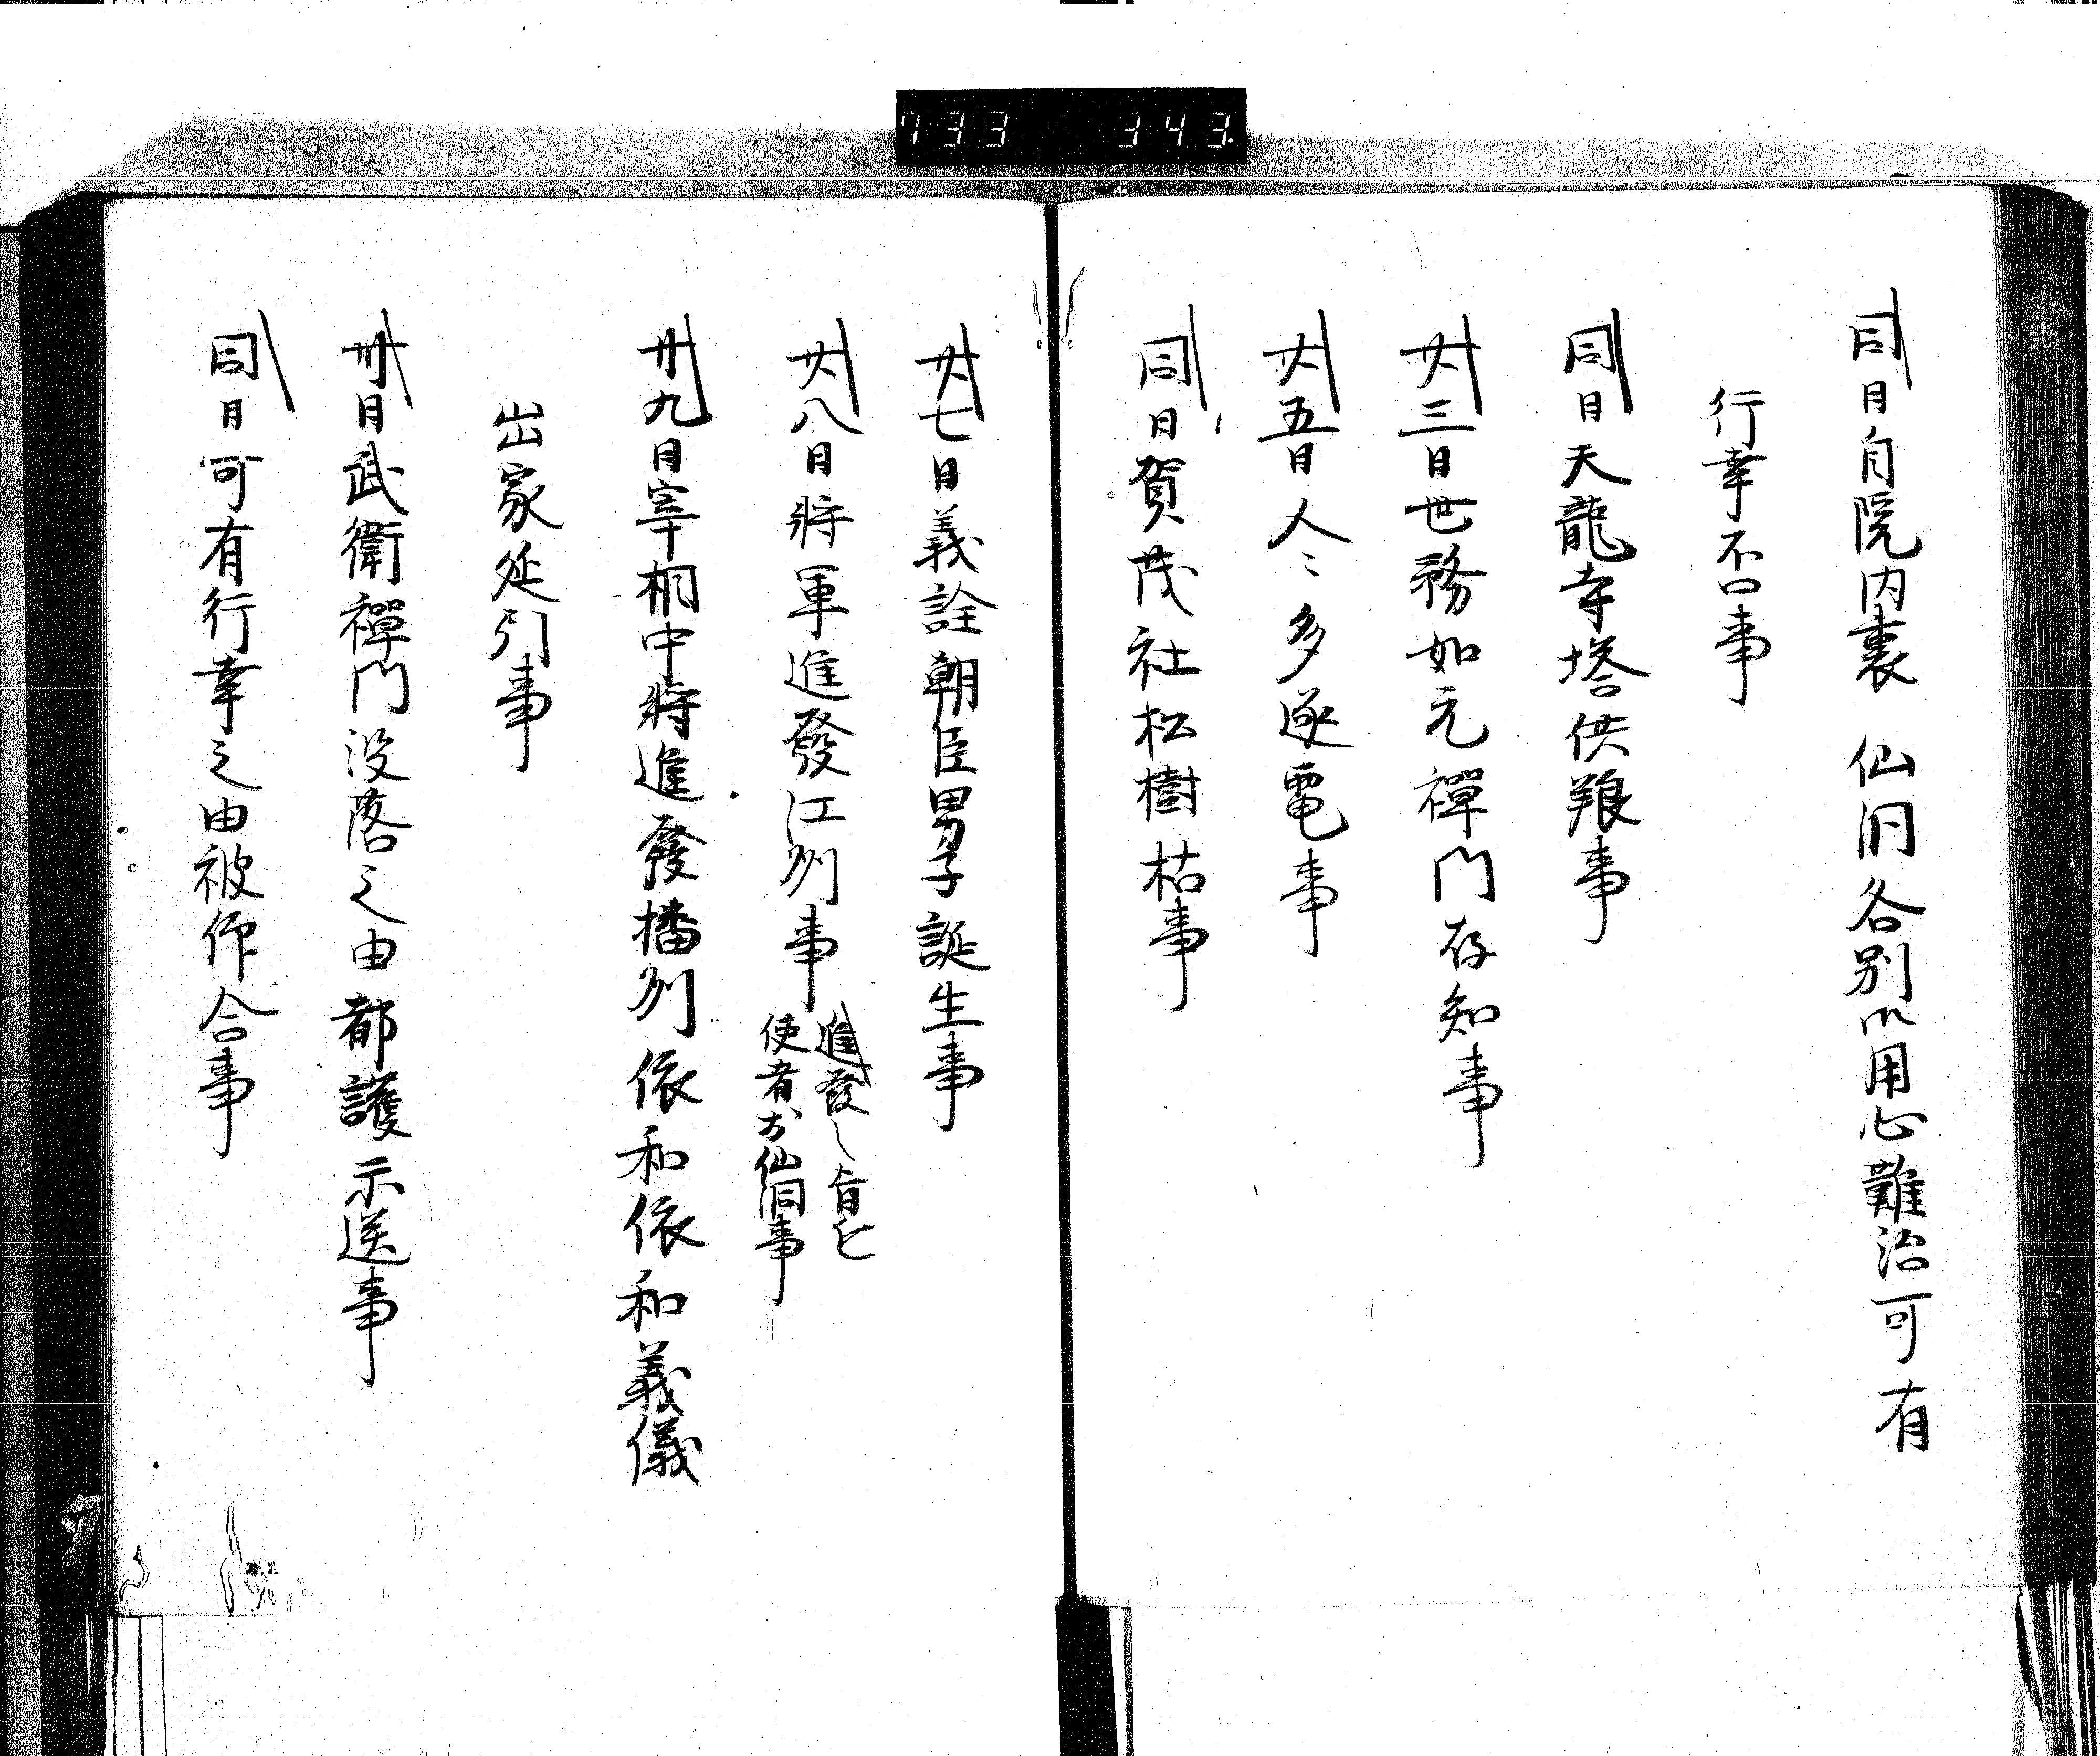 同日自院内裏 仙洞各別御用心難治可有
行幸否事
同日天龍寺塔供養事
廿三日世務如元禅門存知事
廿五日人々多逐電事
同日賀茂社松樹枯事
廿七日義詮朝臣男子誕生事
廿八日将軍進發江州事
進發之旨
使者於仙洞事
廿九日宰相中将進發播州依和依和義儀
出家延引事
卅日武衛禅門没落之由都護示送事
同日可有行幸之由被仰合事
733 343